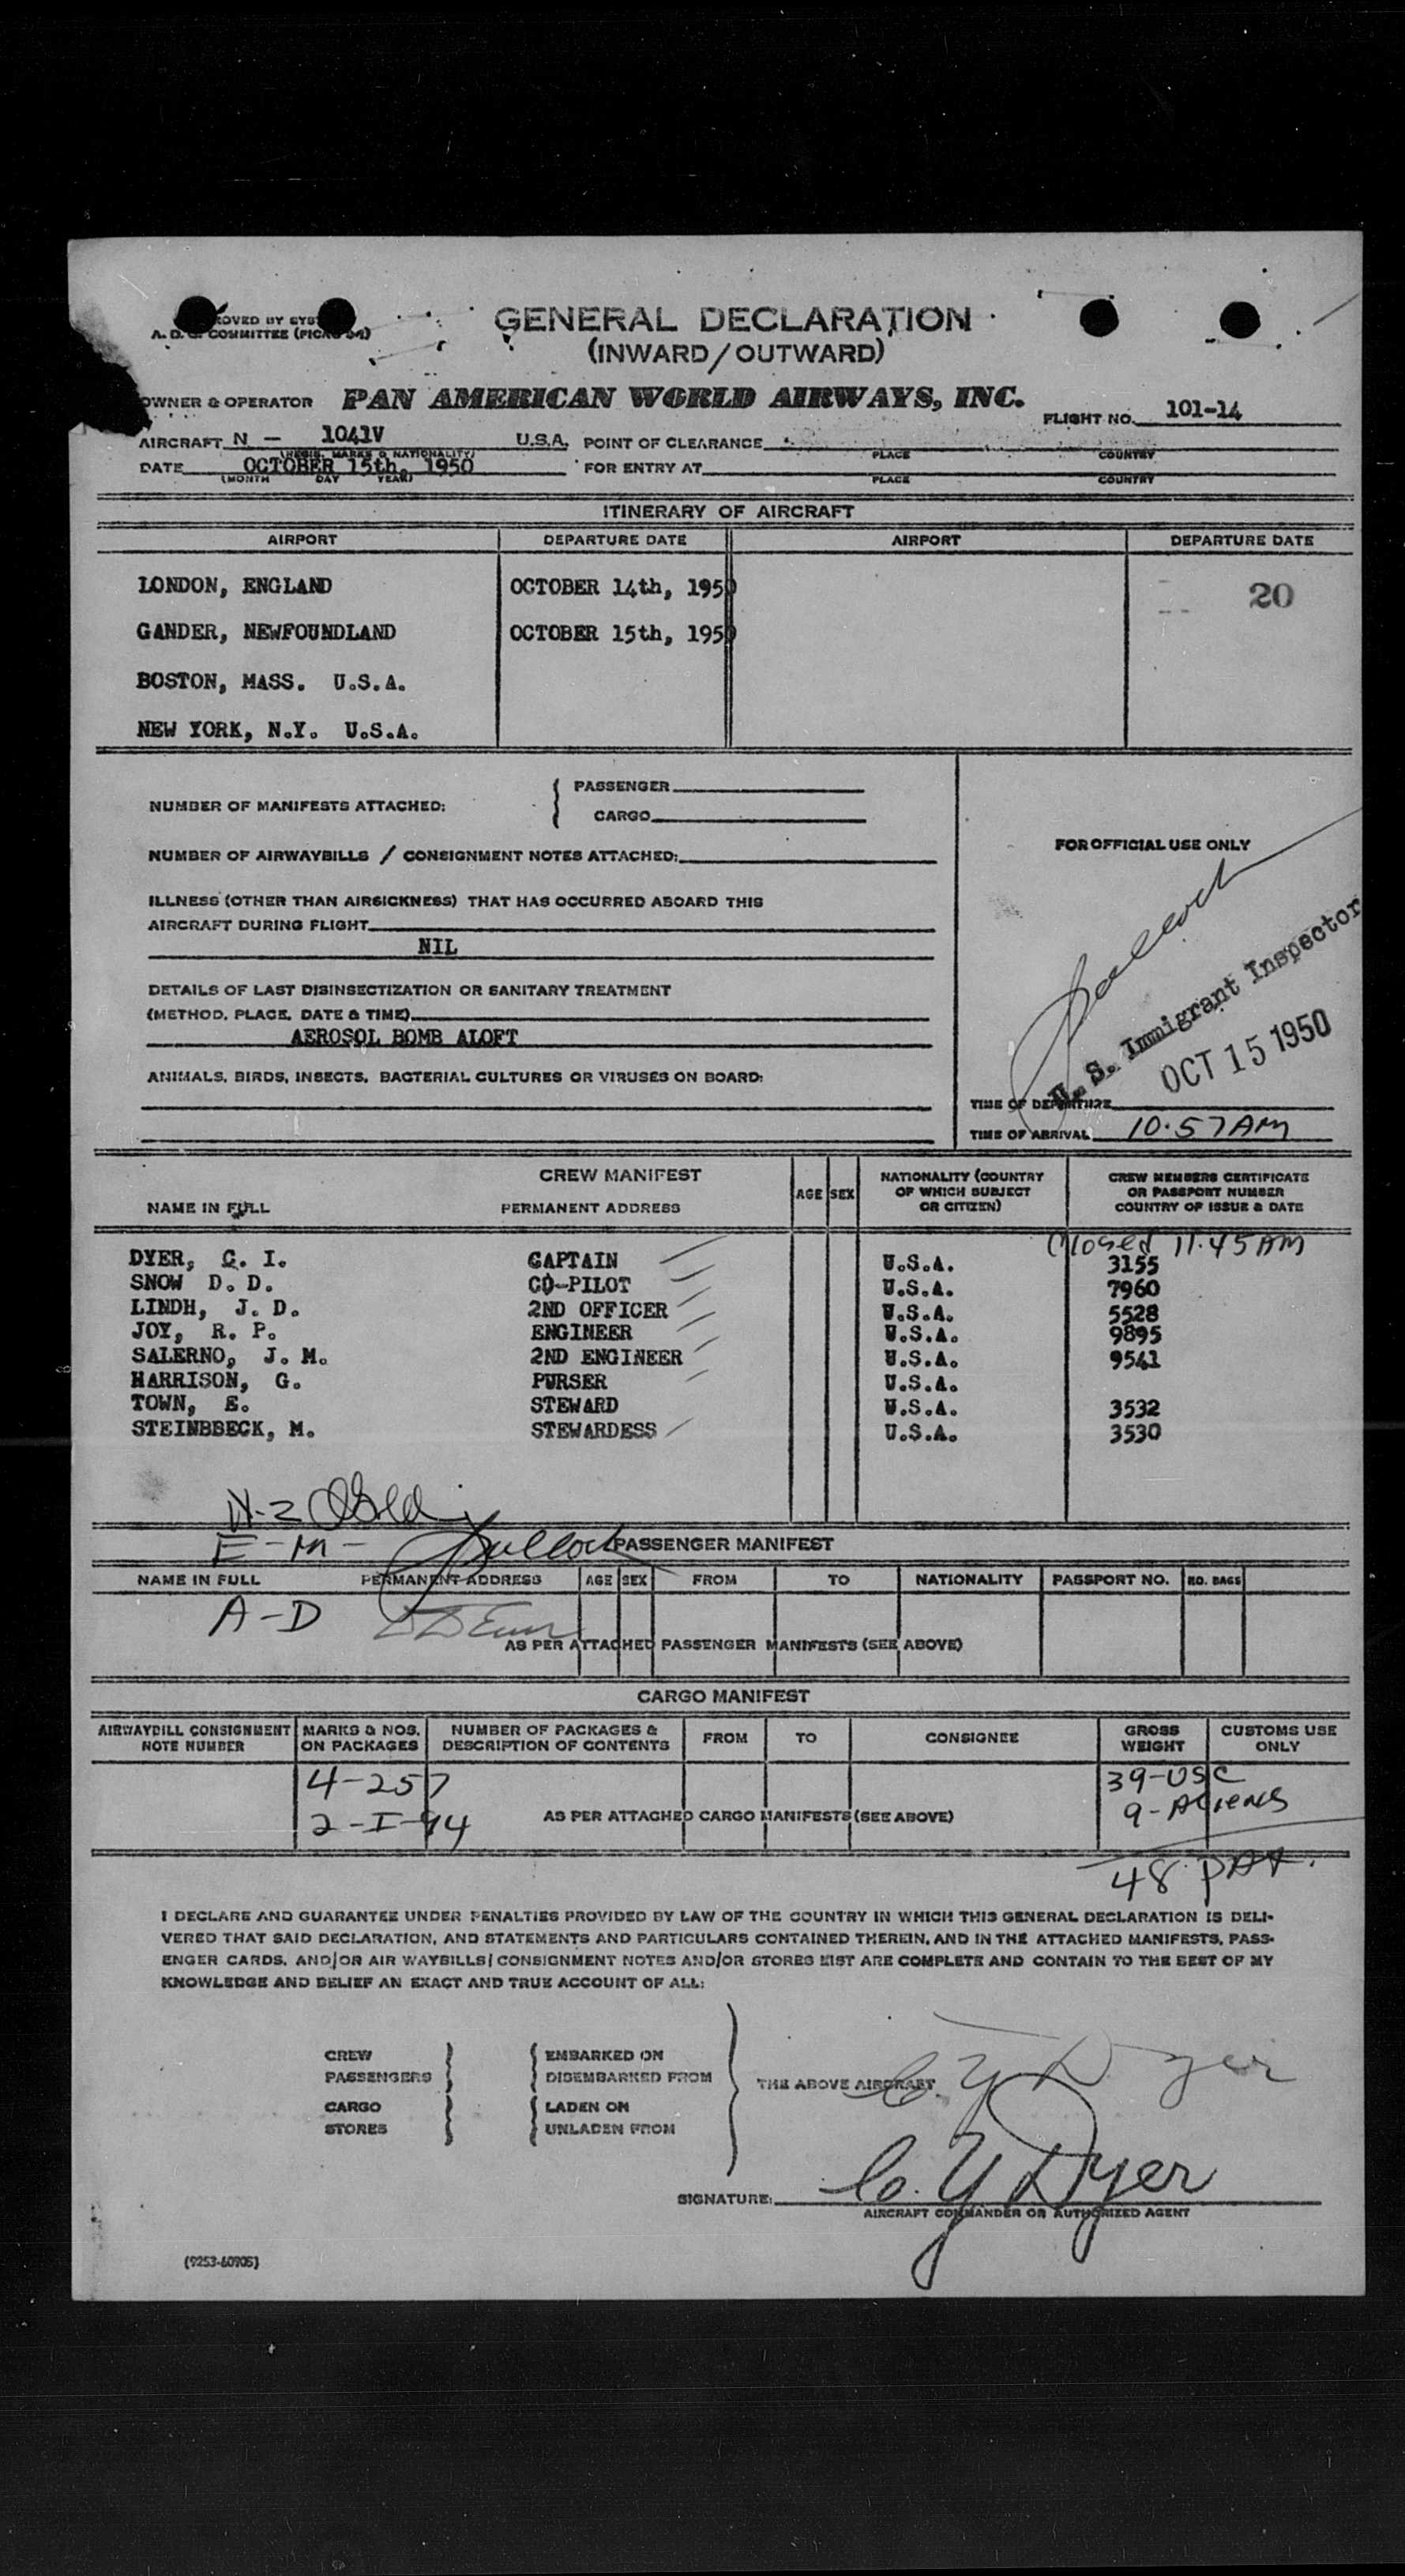 GENERAL DECLARATION
(INWARD/OUTWARD)
A. D. COMMITTEE
OWNER & OPERATOR PAN AMERICAN WORLD AIRWAYS, INC.
FLIGHT NO. 101-14
AIRCRAFT N - 1041V U.S.A. POINT OF CLEARANCE
(REGIS. MARKS & NATIONALITY) PLACE COUNTRY
DATE OCTOBER 15th, 1950 FOR ENTRY AT
(MONTH DAY YEAR) PLACE COUNTRY
ITINERARY OF AIRCRAFT
AIRPORT DEPARTURE DATE AIRPORT DEPARTURE DATE
LONDON, ENGLAND OCTOBER 14th, 1950 20
GANDER, NEWFOUNDLAND OCTOBER 15th, 1950
BOSTON, MASS. U.S.A.
NEW YORK, N.Y. U.S.A.
NUMBER OF MANIFESTS ATTACHED: { PASSENGER
CARGO
NUMBER OF AIRWAYBILLS / CONSIGNMENT NOTES ATTACHED:
ILLNESS (OTHER THAN AIRSICKNESS) THAT HAS OCCURRED ABOARD THIS
AIRCRAFT DURING FLIGHT
NIL
DETAILS OF LAST DISINSECTIZATION OR SANITARY TREATMENT
(METHOD, PLACE, DATE & TIME)
AEROSOL BOMB ALOFT
ANIMALS, BIRDS, INSECTS, BACTERIAL CULTURES OR VIRUSES ON BOARD:
FOR OFFICIAL USE ONLY
U. S. Immigrant Inspector
OCT 15 1950
TIME OF DEPARTURE
TIME OF ARRIVAL 10.57 AM
CREW MANIFEST
NAME IN FULL PERMANENT ADDRESS AGE SEX NATIONALITY (COUNTRY OF WHICH SUBJECT OR CITIZEN) CREW MEMBERS CERTIFICATE OR PASSPORT NUMBER COUNTRY OF ISSUE & DATE
Closed 11.45 AM
DYER, C. I. CAPTAIN U.S.A. 3155
SNOW D. D. CO-PILOT U.S.A. 7960
LINDH, J. D. 2ND OFFICER U.S.A. 5528
JOY, R. P. ENGINEER U.S.A. 9895
SALERNO, J. M. 2ND ENGINEER U.S.A. 9541
HARRISON, G. PURSER U.S.A.
TOWN, E. STEWARD U.S.A. 3532
STEINBBECK, M. STEWARDESS U.S.A. 3530
N-Z
E-M- Bullock
PASSENGER MANIFEST
NAME IN FULL PERMANENT ADDRESS AGE SEX FROM TO NATIONALITY PASSPORT NO. NO. BAGS
A-D
AS PER ATTACHED PASSENGER MANIFESTS (SEE ABOVE)
CARGO MANIFEST
AIRWAYBILL CONSIGNMENT NOTE NUMBER MARKS & NOS. ON PACKAGES NUMBER OF PACKAGES & DESCRIPTION OF CONTENTS FROM TO CONSIGNEE GROSS WEIGHT CUSTOMS USE ONLY
4-257 39-USC
2-I-94 AS PER ATTACHED CARGO MANIFESTS (SEE ABOVE) 9-Aliens
48
I DECLARE AND GUARANTEE UNDER PENALTIES PROVIDED BY LAW OF THE COUNTRY IN WHICH THIS GENERAL DECLARATION IS DELI-
VERED THAT SAID DECLARATION, AND STATEMENTS AND PARTICULARS CONTAINED THEREIN, AND IN THE ATTACHED MANIFESTS, PASS-
ENGER CARDS, AND/OR AIR WAYBILLS/ CONSIGNMENT NOTES AND/OR STORES LIST ARE COMPLETE AND CONTAIN TO THE BEST OF MY
KNOWLEDGE AND BELIEF AN EXACT AND TRUE ACCOUNT OF ALL:
CREW EMBARKED ON
PASSENGERS DISEMBARKED FROM
THE ABOVE AIRCRAFT
CARGO LADEN ON
STORES UNLADEN FROM
C. Y Dyer
SIGNATURE: C. Y Dyer
AIRCRAFT COMMANDER OR AUTHORIZED AGENT
(9253-60905)